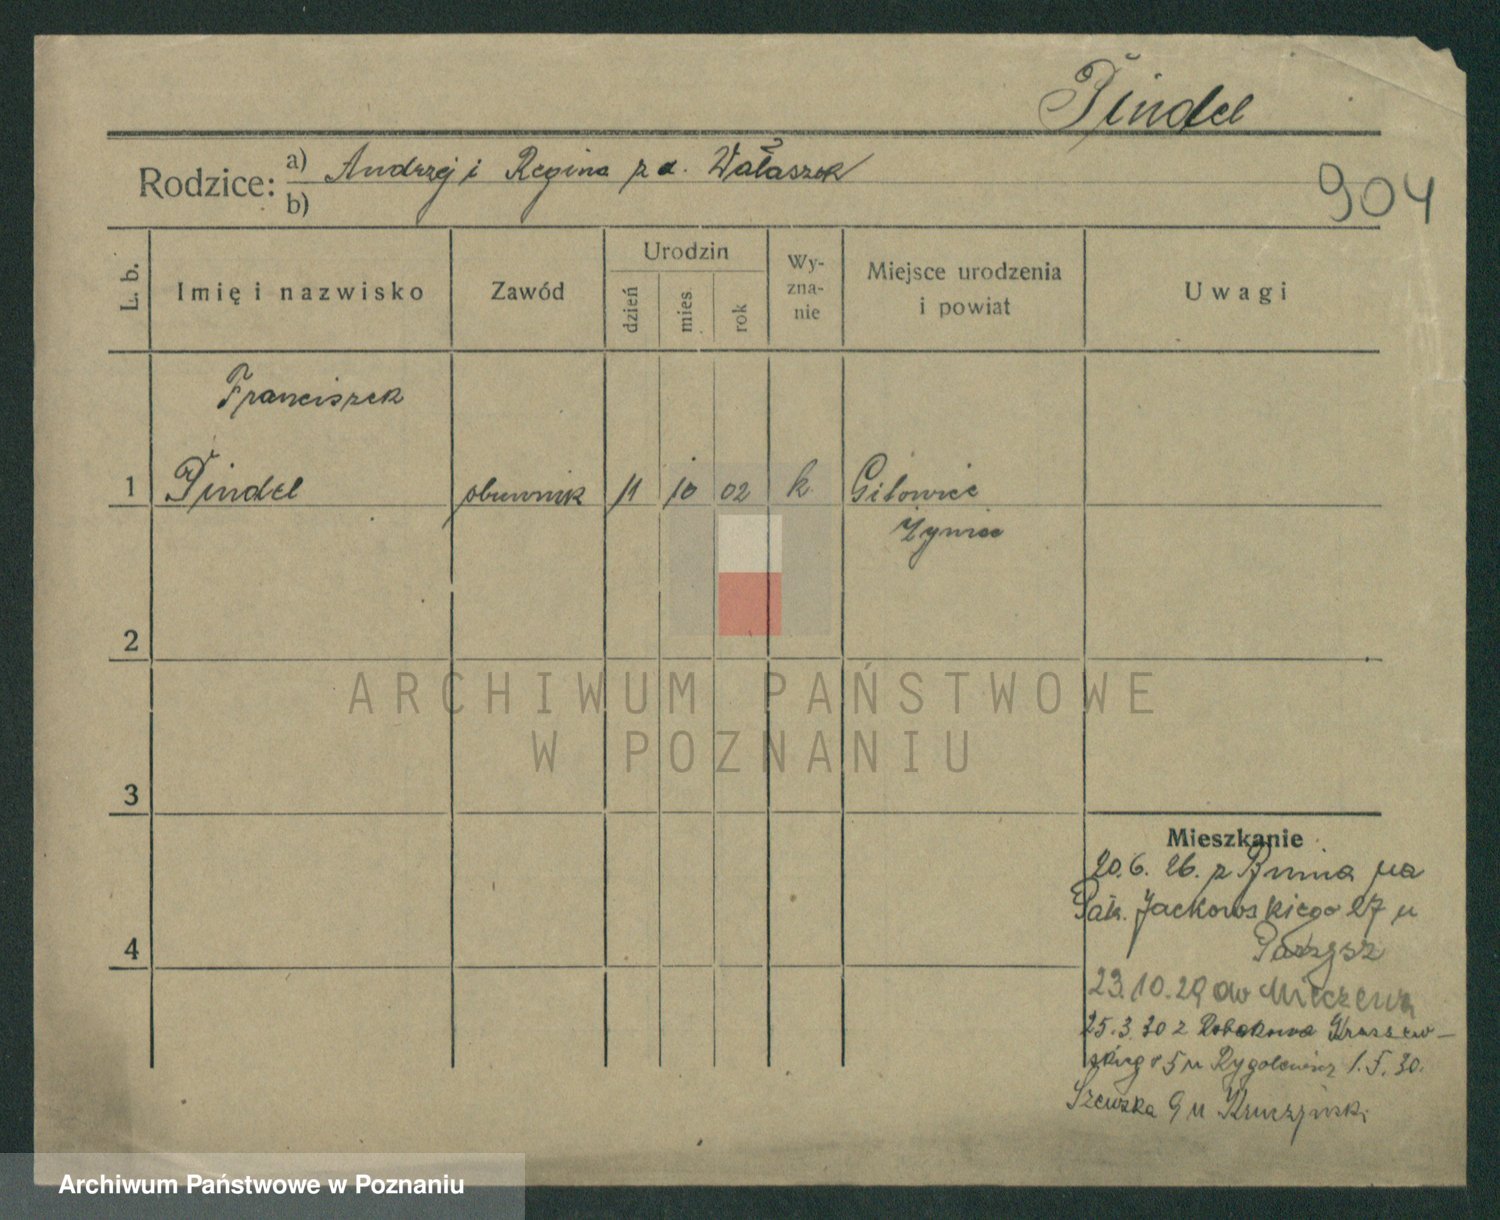 Pindel
Rodzice: a) Andrzej i Regina z d. Wałaszek
b)
904
L. b.
Imię i nazwisko
Zawód
Urodzin
dzień
mies.
rok
Wy-
zna-
nie
Miejsce urodzenia
i powiat
Uwagi
Franciszek
1 Pindel obuwnik 11 10 02 k. Gilowice
Żywiec
2
3
4
ARCHIWUM PAŃSTWOWE
W POZNANIU
Mieszkanie
20.6.26. z Bnina na
Jackowskiego 27 u
23.10.29 do Mieczewa
25.3.30 z Robakowa Kraszew-
skiego 5 u 1.5.30.
Szewska 9 u Kruczyński
Archiwum Państwowe w Poznaniu